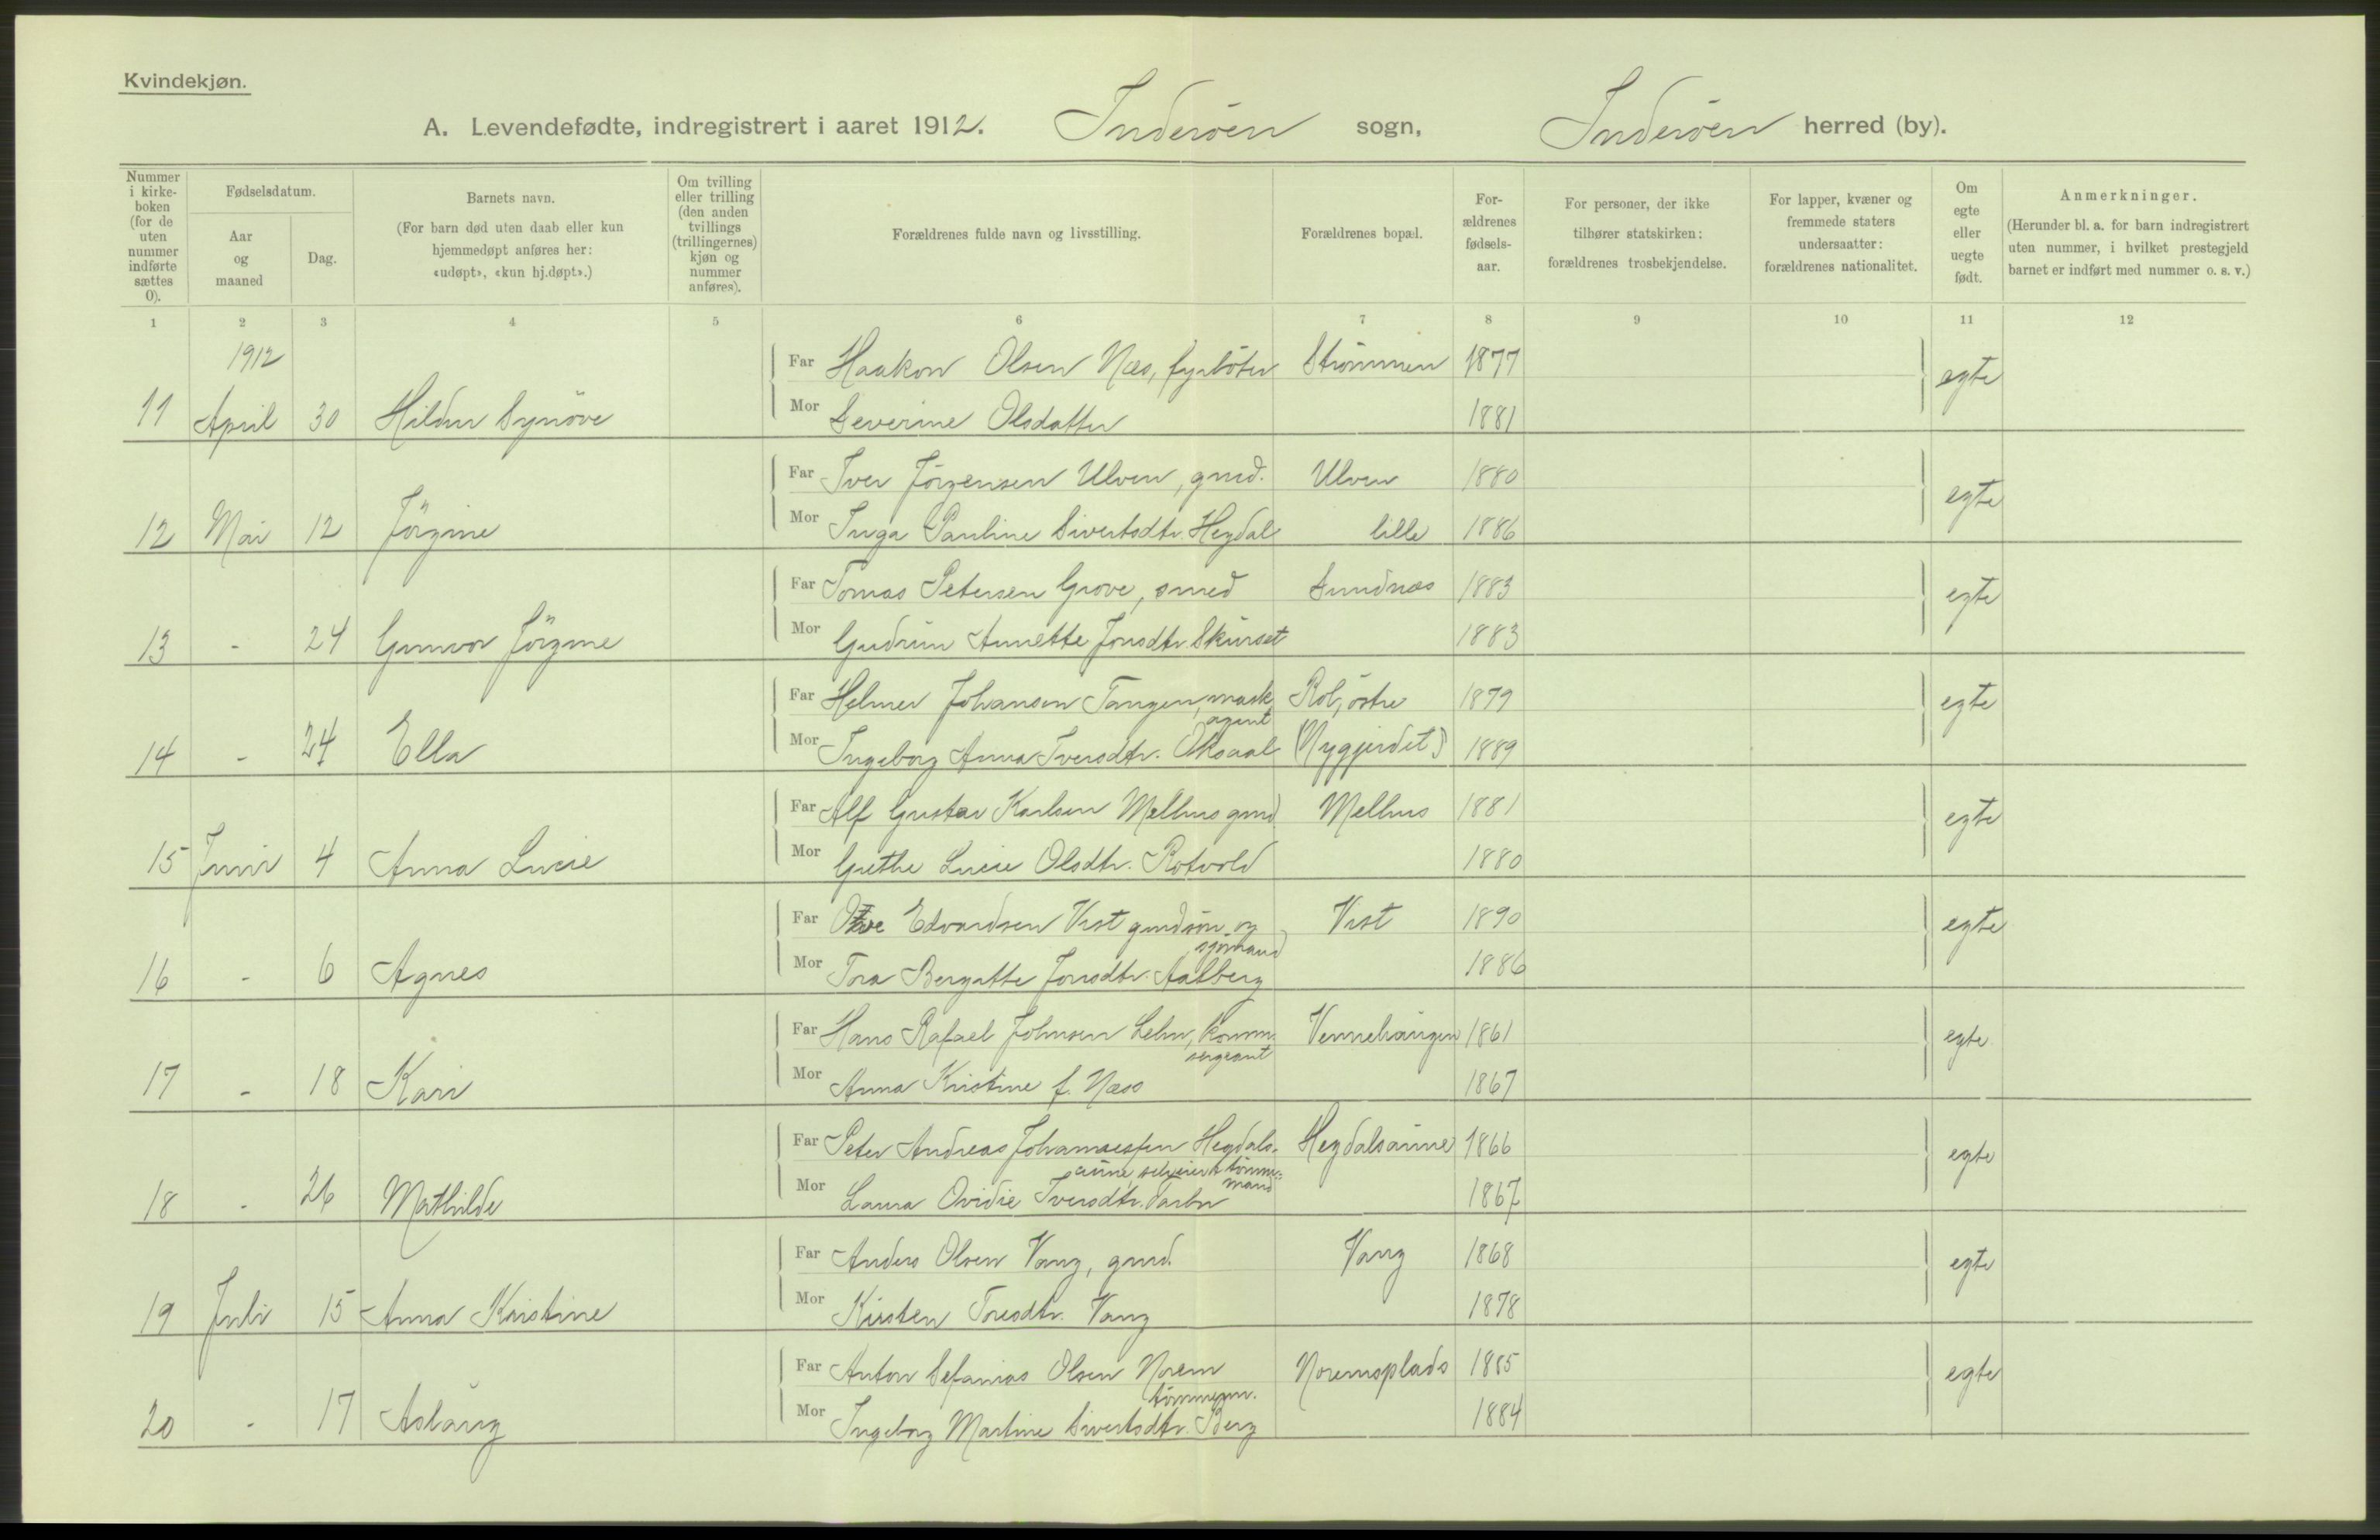 Kvindekjøn.
A. Levendefødte, indregistrert i aaret 1912. Inderöen sogn, Inderöen herred (by).
Nummer i kirkeboken (for de uten nummer indførte sættes 0).
Fødselsdatum.
Aar og maaned
Dag.
Barnets navn.
(For barn død uten daab eller kun hjemmedøpt anføres her: «udøpt», «kun hj.døpt».)
Om tvilling eller trilling (den anden tvillings (trillingernes) kjøn og nummer anføres).
Forældrenes fulde navn og livsstilling.
Forældrenes bopæl.
For-ældrenes fødsels-aar.
For personer, der ikke tilhører statskirken: forældrenes trosbekjendelse.
For lapper, kvæner og fremmede staters undersaatter: forældrenes nationalitet.
Om egte eller uegte født.
Anmerkninger.
(Herunder bl. a. for barn indregistrert uten nummer, i hvilket prestegjeld barnet er indført med nummer o. s. v.)
1 2 3 4 5 6 7 8 9 10 11 12
1912
Far Haakon Olsen Næs, fyrböter Strömmen 1877 egte
11 April 30 Hildur Synöve Mor Severine Olsdatter 1881
Far Iver Jörgensen Ulven, gmd. Ulven 1880 egte
12 Mai 12 Jörgine Mor Inga Pauline Sivertsdtr. Hegdal lille 1886
Far Tomas Petersen Grove, smed Sundnæs 1883 egte
13 - 24 Gunvor Jörgine Mor Gudrun Annette Jonsdtr. Skurset 1883
Far Helmer Johansen Tangen, mask. Rol, östre 1879 egte
agent
14 - 24 Ella Mor Ingeborg Anna Iversdtr. Oksaal (Nygjerdet) 1889
Far Alf Gustav Karlsen Melhus gmd. Melhus 1881 egte
15 Juni 4 Anna Lucie Mor Grethe Lucie Olsdtr. Rotvold 1880
Far Ove Edvardsen Vist gmdsön og Vist 1890 egte
sjömand
16 - 6 Agnes Mor Tora Bergitte Jonsdtr. Aalberg 1886
Far Hans Rafael Johnsen Lehn, komm. Vennehaugen 1861 egte
sergeant
17 - 18 Kari Mor Anna Kristine f. Næss 1867
Far Peter Andreas Johannessen Hegdals- Hegdalsaune 1866 egte
aune, selveier & tömmer-
mand
18 - 26 Mathilde Mor Laura Ovidie Iversdtr. 1867
Far Anders Olsen Vang, gmd. Vang 1868 egte
19 Juli 15 Anna Kristine Mor Kirsten Toresdtr. Vang 1878
Far Anton Sefanias Olsen Norem Noremsplads 1885 egte
tömmerm.
20 - 17 Aslaug Mor Ingeborg Martine Sivertsdtr. Berg 1884